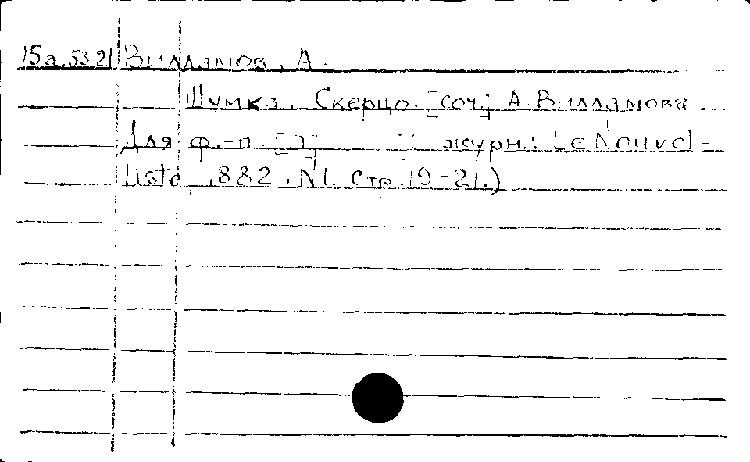 15а.53.21 Вилламов, А.
Шумка. Скерцо. [соч.] А. Вилламова.
Для ф.-п. журн.: Le Nouvel-
liste 1882. N1. Стр. 19-21.)